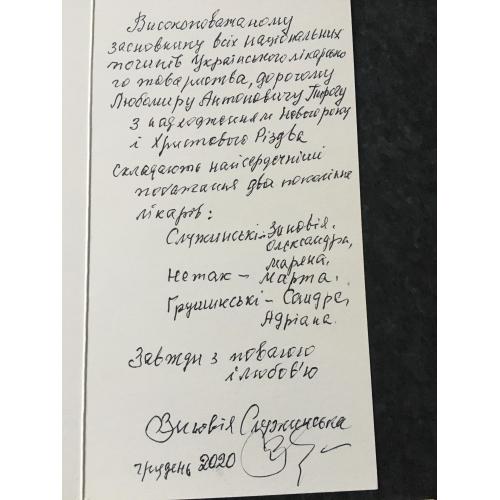 Високоповажаному
засновнику всіх національних
починів Українського лікарсько
го товариства, дорогому
Любомиру Антоновичу Пирогу
з надходженням Нового року
і Христового Різдва
складають найсердечніші
побажання два покоління
лікарів:
Служинські – Зиновія,
Олександра,
Марена,
Нетак – Марта.
Грушинські – Сандра,
Адріана.
Завжди з повагою
і любов'ю
Зиновія Служинська
грудень 2020